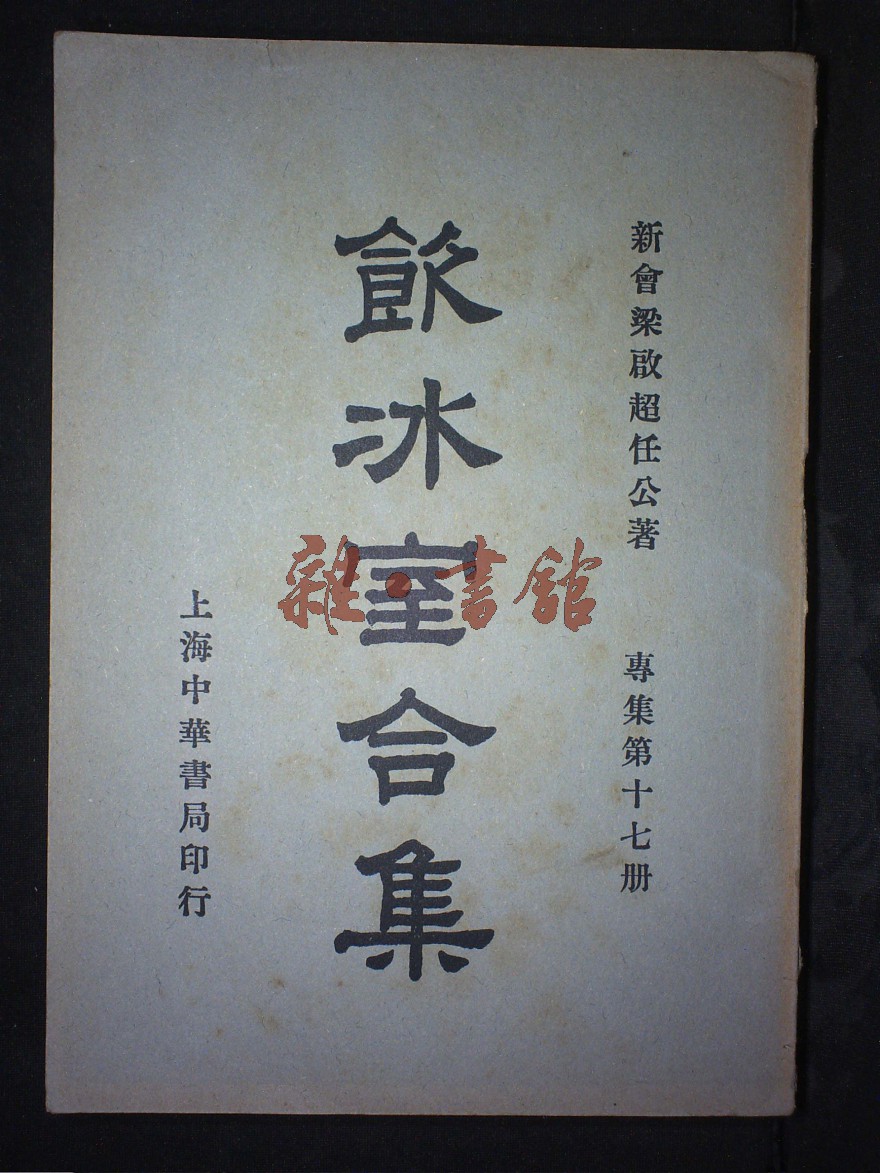 新會梁啟超任公著
專集第十七册
飲冰室合集
上海中華書局印行
雜·書館